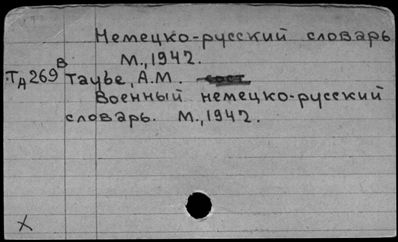 Немецко-русский словарь
М., 1942.
В
ТД269 Таубе, А.М. сост
Военный немецко-русский
словарь. М., 1942.
X